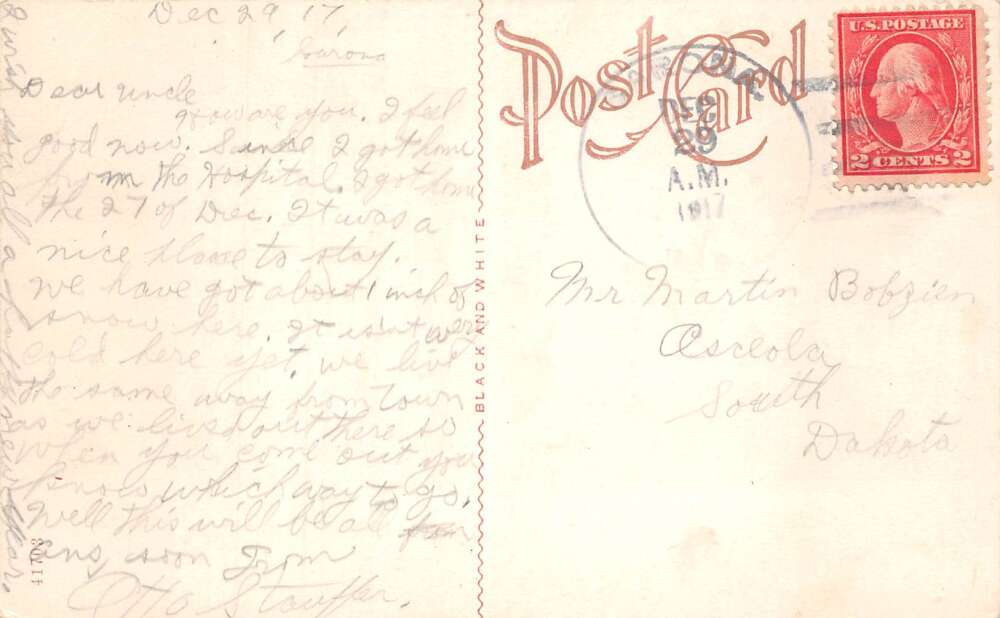 Dec 29 17
Dear uncle
how are you. I feel
good now. Sinse I got home
from the Hospital. I got home
the 27 of Dec. It was a
nice place to stay.
we have got about 1 inch of
snow here. It isn't very
cold here yet. we live
the same way from town
as we lived out there so
when you come out you
know which way to go.
Well this will be all
ans, soon From
Otto Stauffer.
I wish you all a happy new year.
41703
BLACK AND WHITE
Post Card
DEC
29
A.M.
1917
U.S. POSTAGE
2 CENTS 2
Mr Martin Bobzien
Osceola
South
Dakota